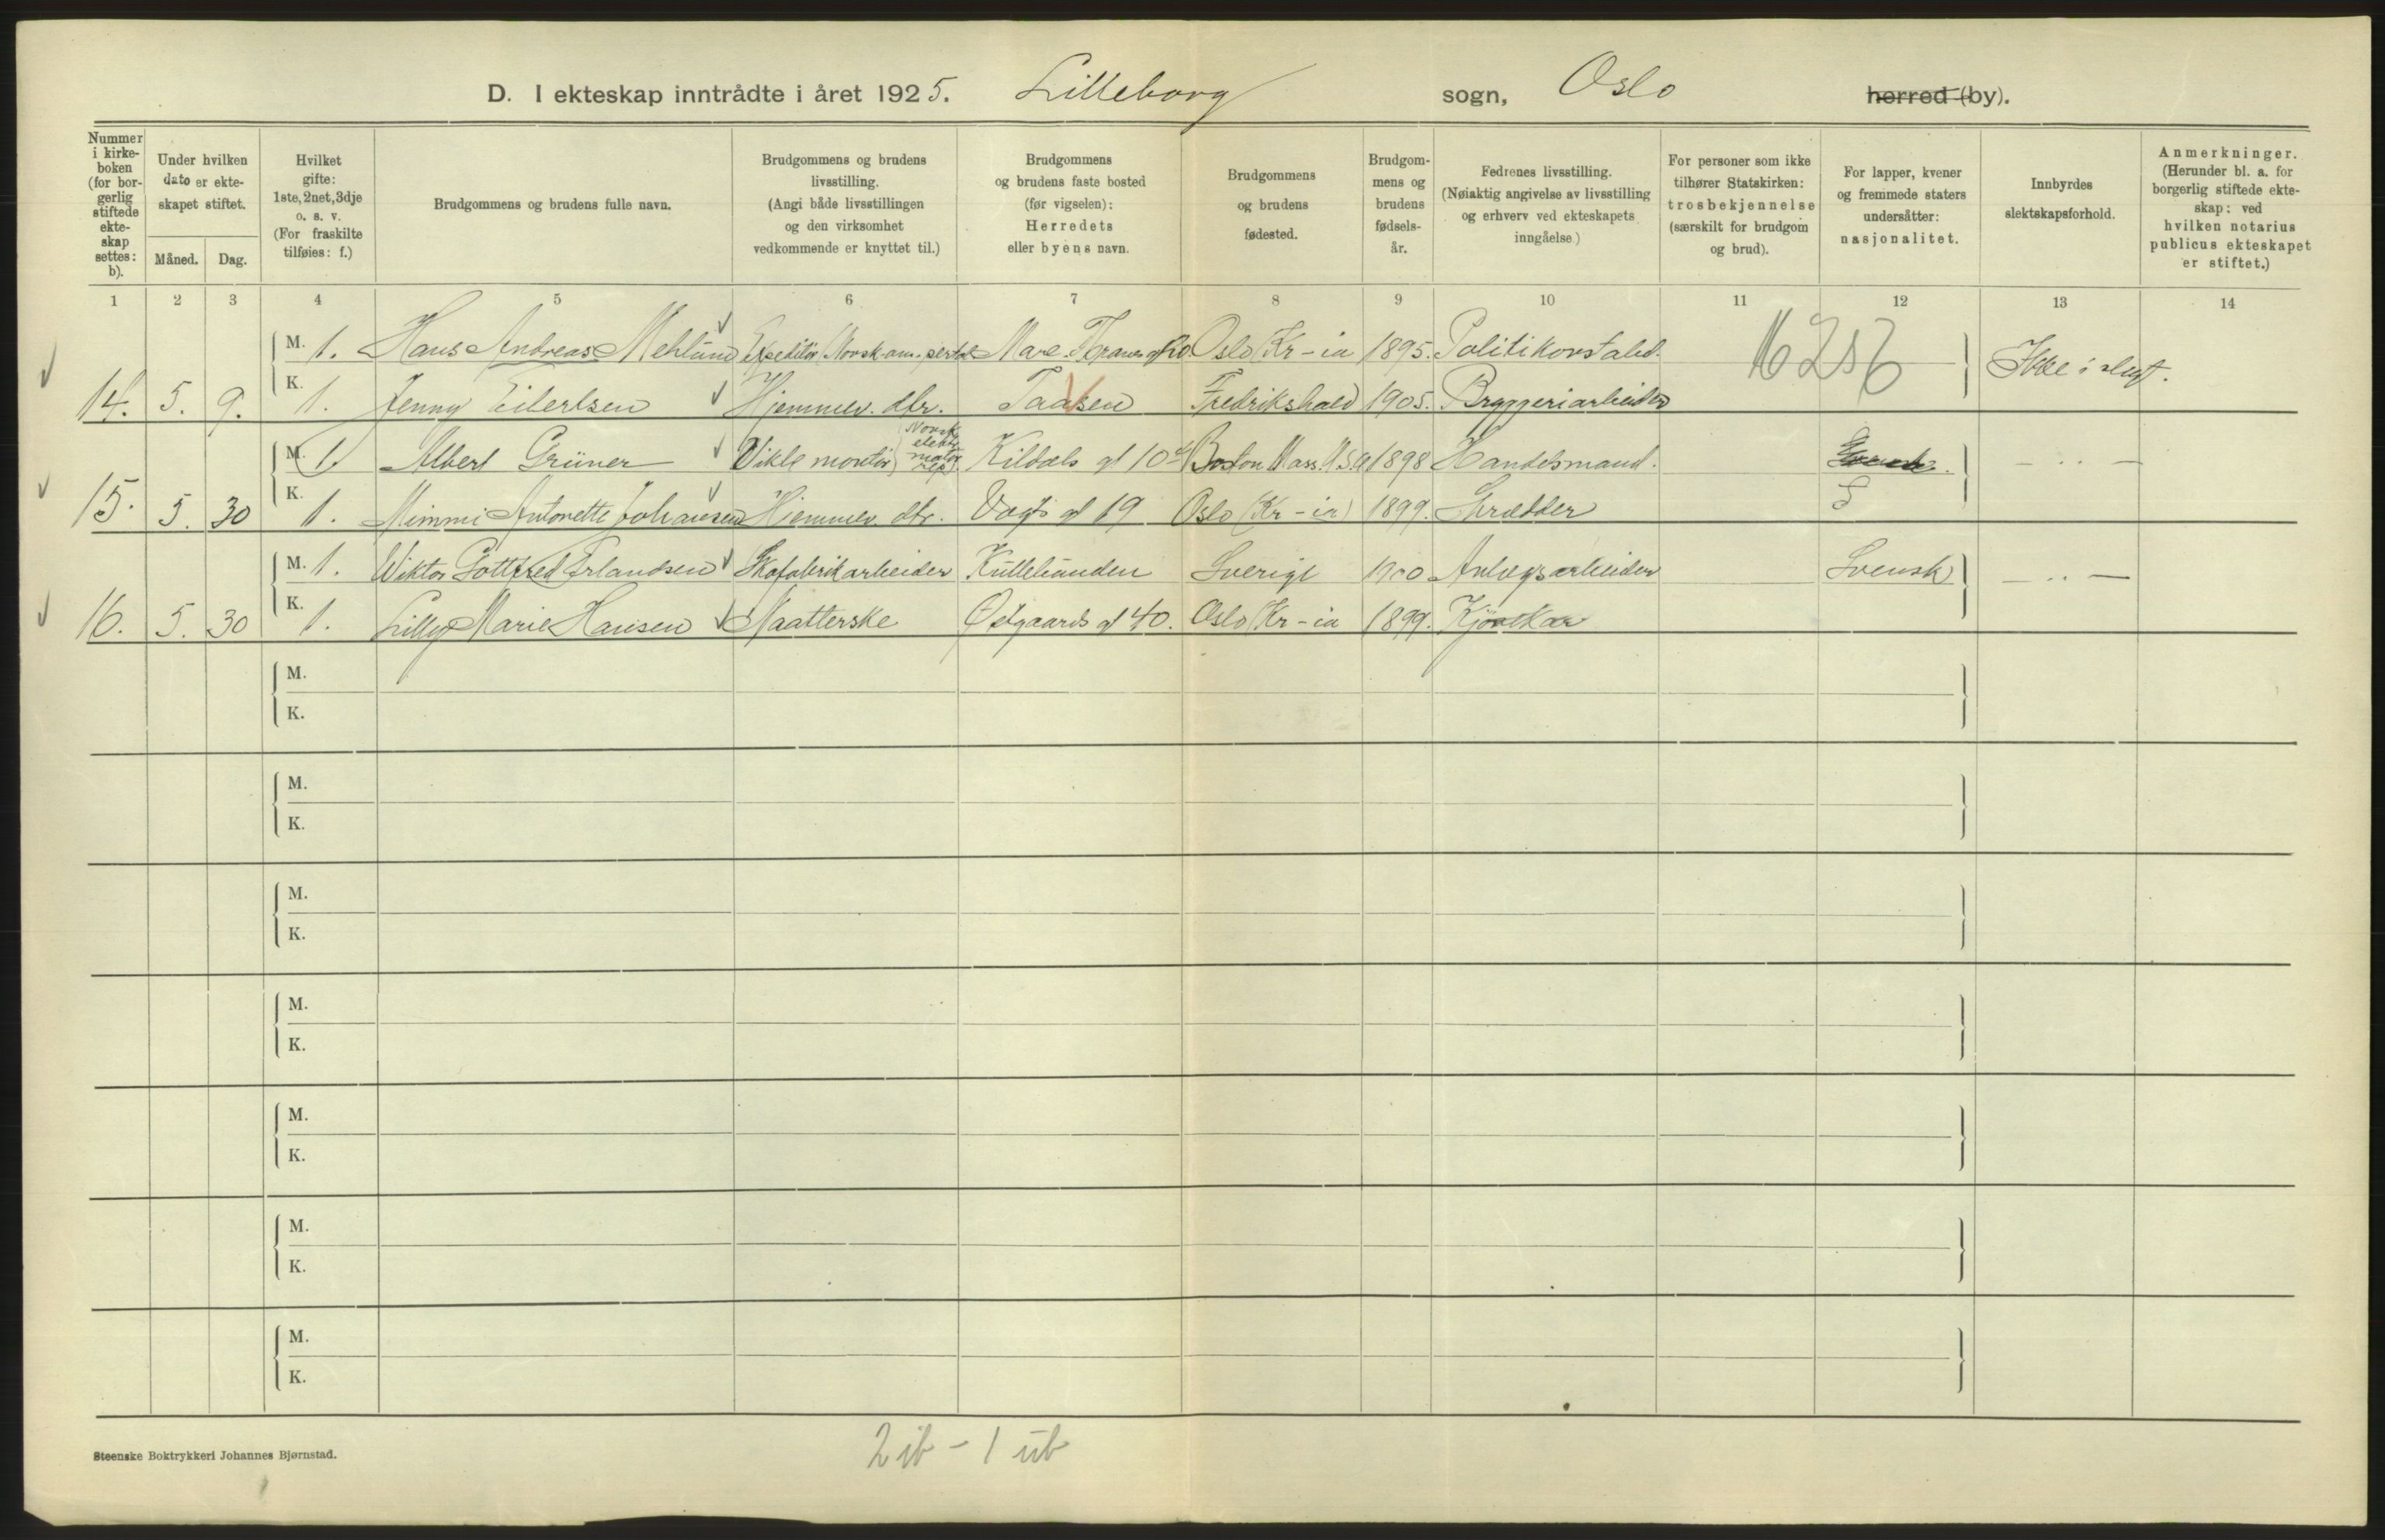 D. I ekteskap inntrådte i året 1925. Lilleborg sogn, Oslo herred (by).
Nummer i kirke-boken (for bor-gerlig stiftede ekte-skap settes: b).
Under hvilken dato er ekte-skapet stiftet.
Måned. Dag.
Hvilket gifte: 1ste, 2net, 3dje o. s. v. (For fraskilte tilføies: f.)
Brudgommens og brudens fulle navn.
Brudgommens og brudens livsstilling. (Angi både livsstillingen og den virksomhet vedkommende er knyttet til.)
Brudgommens og brudens faste bosted (før vigselen): Herredets eller byens navn.
Brudgommens og brudens fødested.
Brudgom-mens og brudens fødsels-år.
Fedrenes livsstilling. (Nøiaktig angivelse av livsstilling og erhverv ved ekteskapets inngåelse)
For personer som ikke tilhører Statskirken: trosbekjennelse (særskilt for brudgom og brud).
For lapper, kvener og fremmede staters undersåtter: nasjonalitet.
Innbyrdes slektskapsforhold.
Anmerkninger. (Herunder bl. a. for borgerlig stiftede ekte-skap: ved hvilken notarius publicus ekteskapet er stiftet.)
1 2 3 4 5 6 7 8 9 10 11 12 13 14
M. 1. Hans Andreas Mehlund Expeditör Norsk-am. Marc. Thranes gt Oslo (Kr-ia 1895. Politikonstabel. Ikke i slegt.
14. 5. 9. K. 1. Jenny Eilertsen Hjemmev. dtr. Taasen Fredrikshald 1905. Bryggeriarbeider
M. 1. Albert Grüner Viklemontör Norsk elektr. motor rep. Kildals gt 10 Boston Mass. U.S.A 1898 Handelsmand. — " —
15. 5. 30 K. 1. Mimmi Antonette Johansen Hjemmev. dtr. Vogts gt 19 Oslo (Kr-ia) 1899. Skrædder S
M. 1. Wiktor Gottfred Erlandsen Skofabrikarbeider Kullebunden Sverige 1900 Anlegsarbeider Svensk — " —
16. 5. 30 K. 1. Lilly Marie Hansen Maatterske Østgaards gt 40. Oslo (Kr-ia 1899. Kjørekar
M.
K.
M.
K.
M.
K.
M.
K.
M.
K.
M.
K.
M.
K.
Steenske Boktrykkeri Johannes Bjørnstad.
2 ib - 1 ub